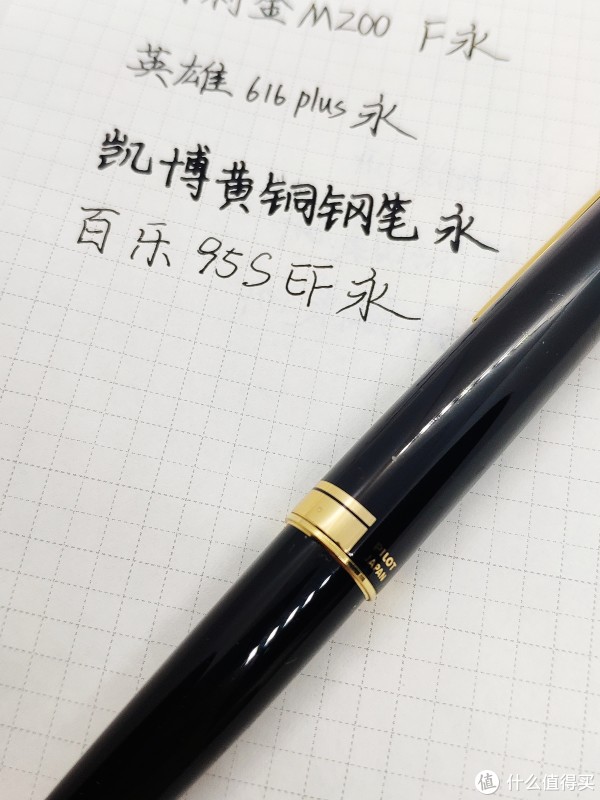 利金M200 F永
英雄 616 plus 永
凯博黄铜钢笔 永
百乐 95S EF 永
PILOT
JAPAN
值 什么值得买